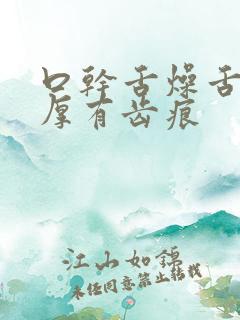 口幹舌燥舌
厚有齿痕
江山如锦
未经同意禁止转载